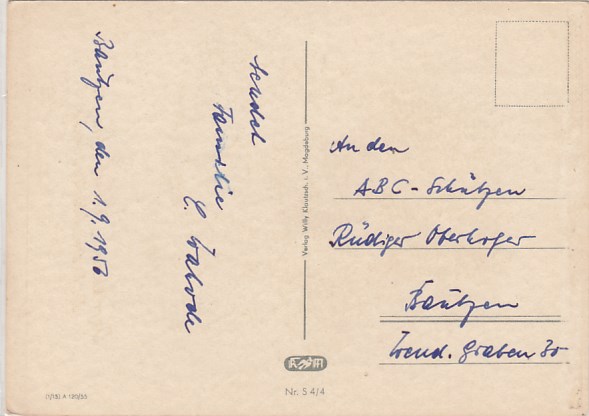 Bautzen, den 1.9.1956
sendet
Familie
E. Walode
Verlag Willy Klautzsch i. V., Magdeburg
An den
ABC-Schützen
Rüdiger Oberhofer
Bautzen
Wend. Graben 30
(1/18) A 120/55
Nr. S 4/4